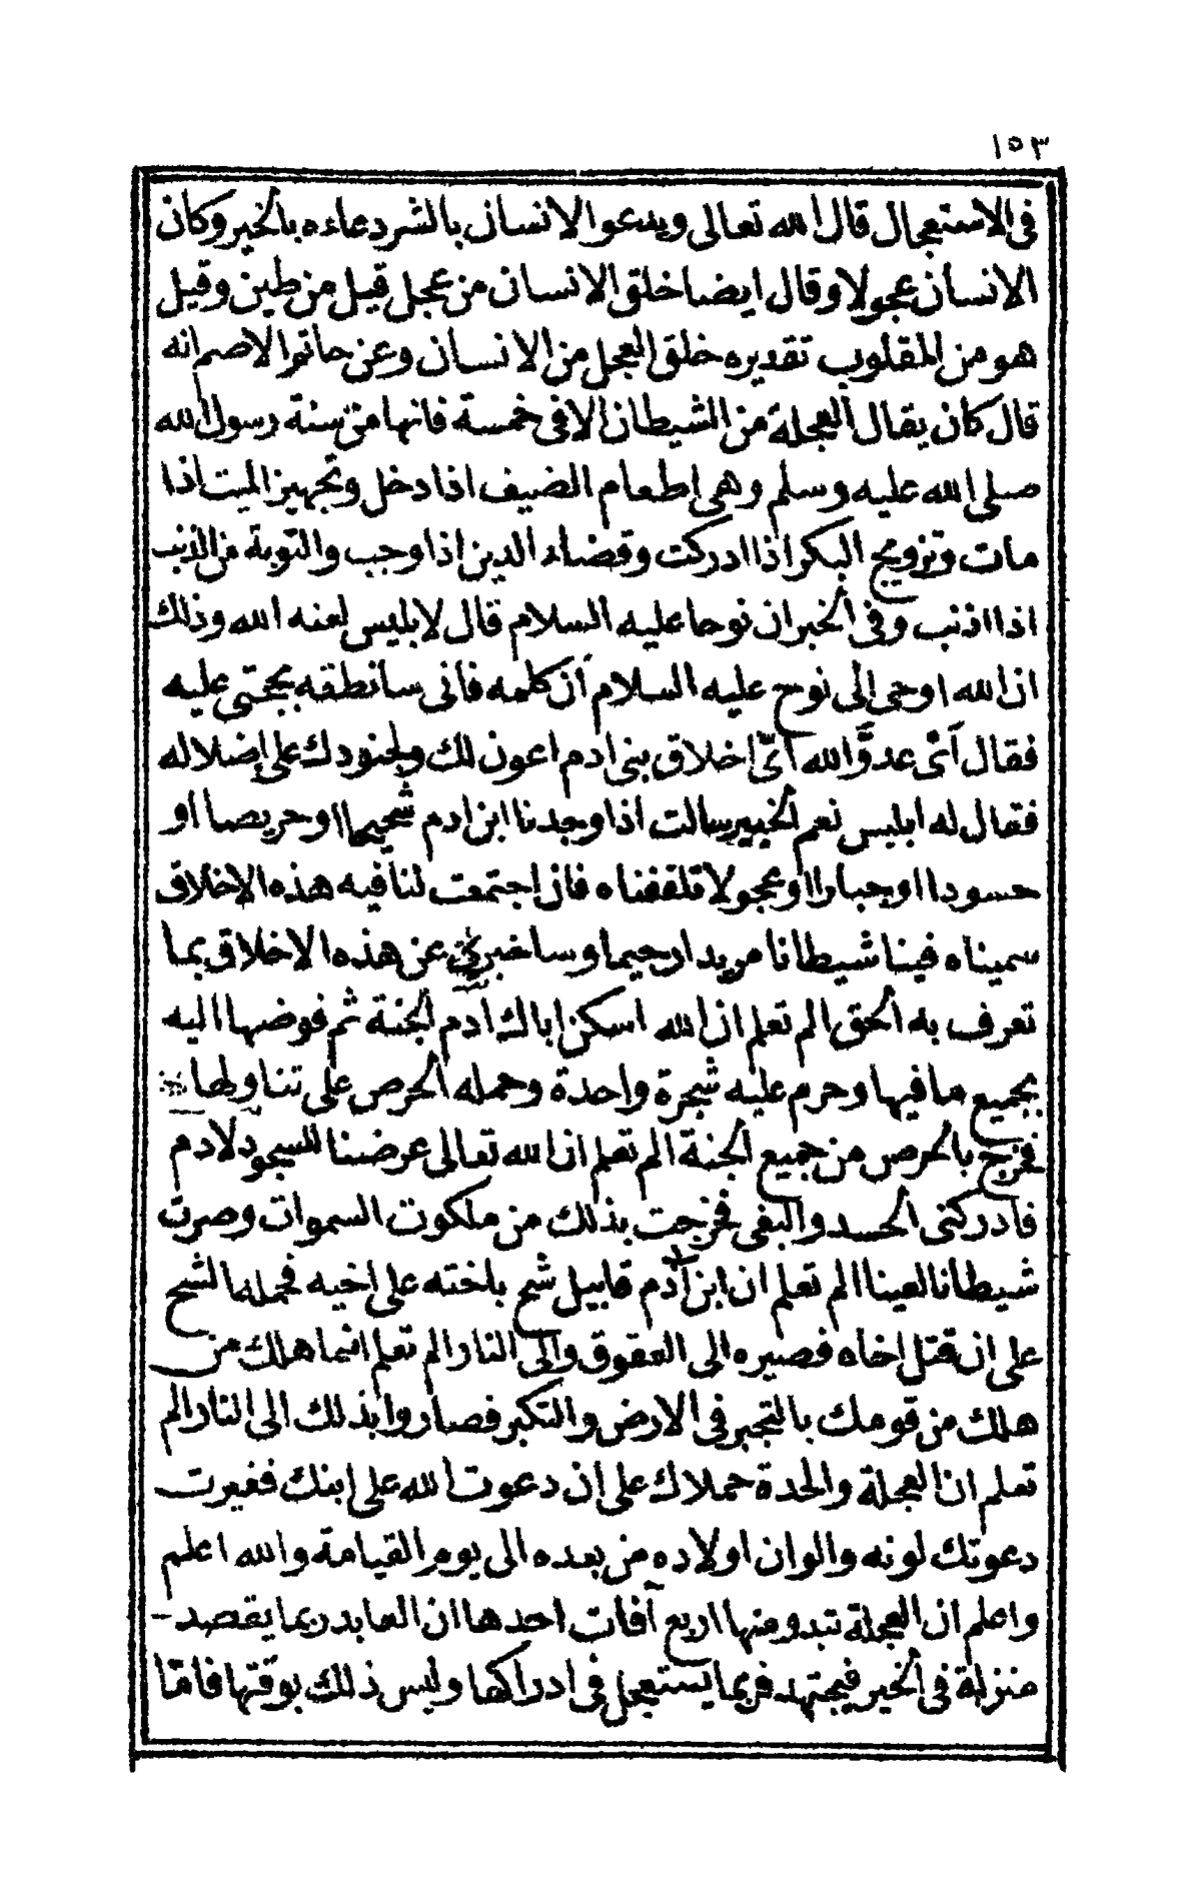 ١٥٣
فى الاستعجال قال الله تعالى ويدعوا الانسان بالشر دعاءه بالخير وكان
الانسان عجولا وقال ايضا خلق الانسان من عجل قيل من طين وقيل
هو من المقلوب تقديره خلق العجل من الانسان وعن حاتم الاصم انه
قال كان يقال العجلة من الشيطان الا فى خمسة فانها من سنة رسول الله
صلى الله عليه وسلم وهى اطعام الضيف اذا دخل وتجهيز الميت اذا
مات وتزويج البكر اذا ادركت وقضاء الدين اذا وجب والتوبة من الذنب
اذا اذنب وفى الخبر ان نوحا عليه السلام قال لابليس لعنه الله وذلك
ان الله اوحى الى نوح عليه السلام أن كلمه فانى سانطقه بحجتى عليه
فقال أنى عدوّ الله اىّ اخلاق بنى ادم اعون لك ولجنودك على إضلاله
فقال له ابليس نعم الخبير سالت اذا وجدنا ابن ادم شحيحا او حريصا او
حسودا او جبارا او عجولا تلقفناه فان اجتمعت لنا فيه هذه الاخلاق
سميناه فينا شيطانا مريدا رجيما وساخبرك عن هذه الاخلاق بما
تعرف به الحق الم تعلم ان الله اسكن اباك ادم الجنة ثم فوضها اليه
بجميع ما فيها وحرم عليه شجرة واحدة وحمله الحرص على تناولها
فخرج بالحرص من جميع الجنة الم تعلم ان الله تعالى عرضنا للسجود لادم
فادركنى الحسد والبغى فخرجت بذلك من ملكوت السموات وصرت
شيطانا لعينا الم تعلم ان ابن آدم قابيل شح باخته على اخيه فحمله الشح
على ان قتل اخاه فصيره الى العقوق والى النار الم تعلم انما هلك من
هلك من قومك بالتجبر فى الارض والتكبر فصاروا بذلك الى النار الم
تعلم ان العجلة والحدة حملاك على ان دعوت الله على ابنك فغيرت
دعوتك لونه والوان اولاده من بعده الى يوم القيامة والله اعلم
واعلم ان العجلة تبدو منها اربع آفات احدها ان العابد ربما يقصد
منزلة فى الخير فيجتهد فربما يستعجل فى ادراكها وليس ذلك بوقتها فامّا